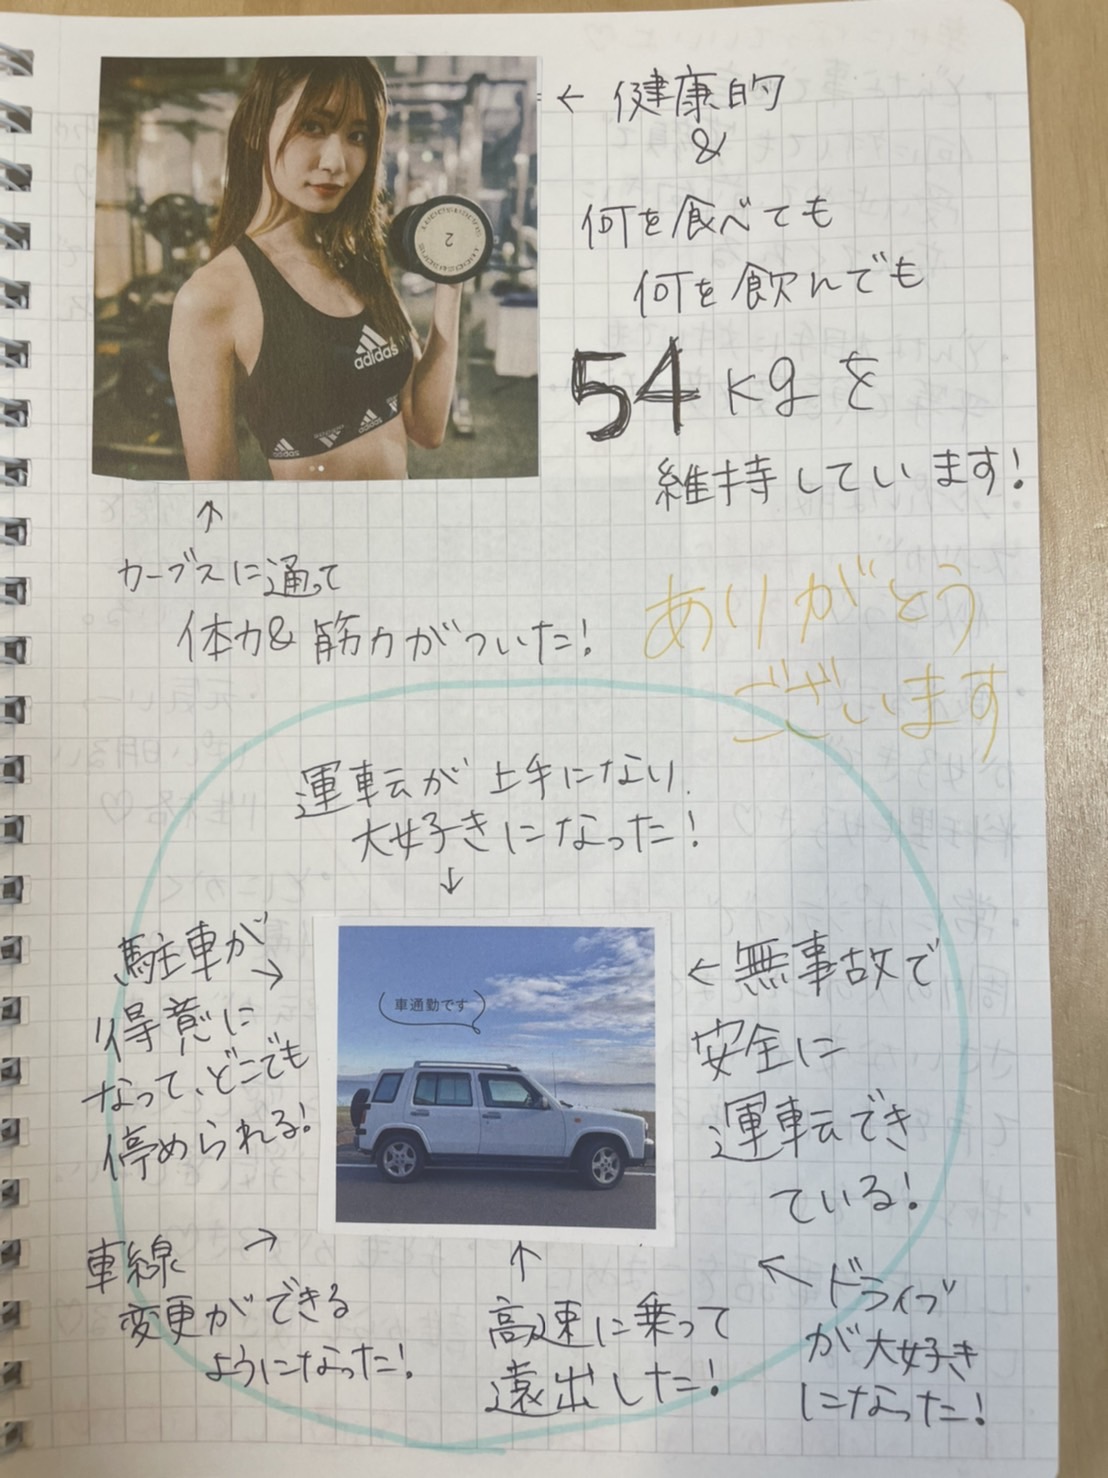 ← 健康的
&
何を食べても
何を飲んでも
54 kgを
維持しています!
adidas
2
↑
カーブスに通って
体力&筋力がついた!
ありがとう
ございます
運転が上手になり
大好きになった!
↓
駐車が →
得意に
なって、どこでも
停められる!
車通勤です
← 無事故で
安全に
運転でき
ている!
車線 →
変更ができる
ようになった!
↑
高速に乗って
遠出した!
← ドライブ
が大好き
になった!